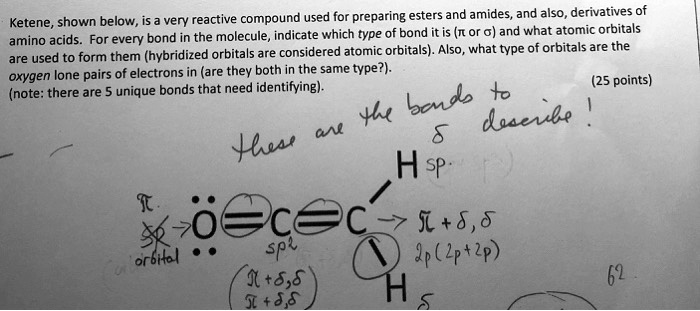 Ketene, shown below, is a very reactive compound used for preparing esters and amides, and also, derivatives of
amino acids. For every bond in the molecule, indicate which type of bond it is (π or σ) and what atomic orbitals
are used to form them (hybridized orbitals are considered atomic orbitals). Also, what type of orbitals are the
oxygen lone pairs of electrons in (are they both in the same type?).
(note: there are 5 unique bonds that need identifying).
(25 points)
these are the bonds to describe!
δ
H sp
π
O=C=C → π + δ, δ
orbital
sp²
2p(2p+2p)
(π + δ, δ
π + δ, δ)
H δ
62